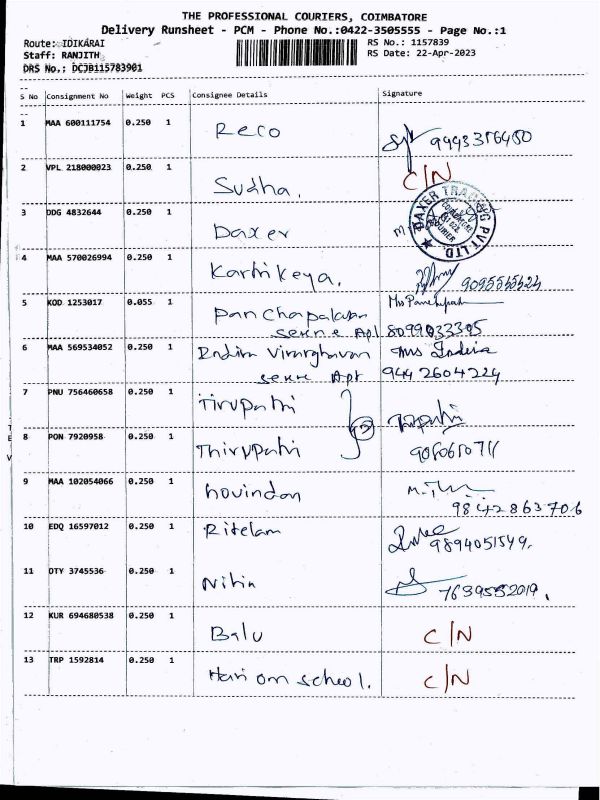 THE PROFESSIONAL COURIERS, COIMBATORE
Delivery Runsheet - PCM - Phone No.:0422-3505555 - Page No.:1
Route: IDIKARAI
RS No.: 1157839
Staff: RANJITH
RS Date: 22-Apr-2023
DRS No.: DCJB115783901
S No Consignment No Weight PCS Consignee Details Signature
1 MAA 600111754 0.250 1 Reco
2 VPL 218000023 0.250 1 Sudha. C/N
3 DDG 4832644 0.250 1 Daxer
DAXER TRADING PVT LTD
4 MAA 570026994 0.250 1 Karthikeya.
5 KOD 1253017 0.055 1
8099033305
6 MAA 569534052 0.250 1 Mrs Indira
9442604224
7 PNU 756460658 0.250 1 Tirupathi
8 PON 7920958 0.250 1 Thirupathi
9 MAA 102054066 0.250 1 Govindan
9842863706
10 EDQ 16597012 0.250 1 Ritelam
9894051549.
11 DTY 3745536 0.250 1 Nitin
7639552019.
12 KUR 694680538 0.250 1 Balu C/N
13 TRP 1592814 0.250 1 Hari om school. C/N